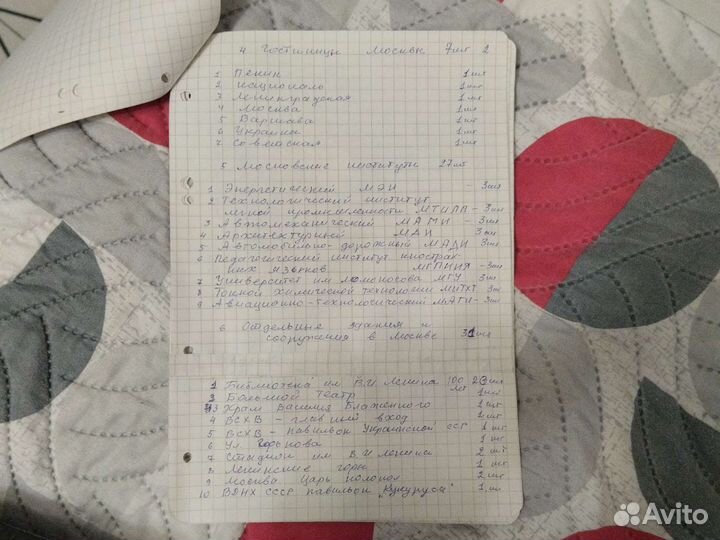 4 Гостиницы Москвы 7шт 2
1 Пекин 1шт
2 Националь 1шт
3 Ленинградская 1шт
4 Москва 1шт
5 Варшава 1шт
6 Украина 1шт
7 Совмаская 1шт
5 Московские институты 27шт
1 Энергетический МЭИ - 3шт
2 Технологический институт
легкой промышленности МТИЛП - 3шт
3 Автомеханический МАМИ - 3шт
4 Архитектурный МАИ 3шт
5 Автомобильно-дорожный МАДИ 3шт
6 Педагогический институт иностран
ных языков МГПИИЯ - 3шт
7 Университет им Ломоносова МГУ 3шт
8 Тонкой химической технологии МИТХТ 3шт
9 Авиационно-технологический МАТИ - 3шт
6 Отдельные здания и
сооружения в Москве 31шт
1 Библиотека им В.И Ленина 100 лет 20шт
2 Большой Театр 1шт
3 Храм Василия Блаженного 1шт
4 ВСХВ - главный вход 1шт
5 ВСХВ - павильон Украинской ССР 1шт
6 Ул Горькова 1шт
7 Стадион им В.И Ленина 2шт
8 Ленинские горы 1шт
9 Москва Царь колокол 2шт
10 ВДНХ СССР павильон "Кукуруза" 1шт
Avito